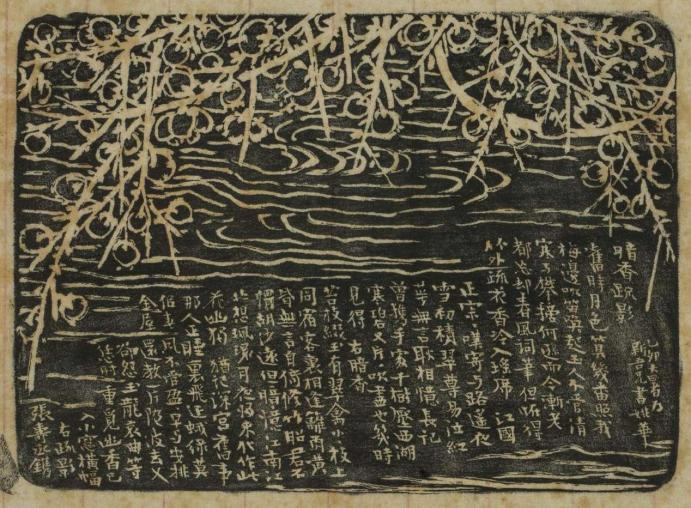 暗香疏影
乙卯大暑為
書姚華
舊時月色算幾番照我
梅邊吹笛喚起玉人不管清
寒與攀摘何遜而今漸老
都忘却春風詞筆但怪得
竹外疏花香冷入瑤席 江國
正寂〻嘆寄与路遙夜
雪初積翠尊易泣紅
萼無言耿相憶長記
曾攜手處千樹壓西湖
寒碧又片〻吹盡也幾時
見得 右暗香
苔枝綴玉有翠禽小〻枝上
同宿客裏相逢籬角黃
昏無言自倚修竹昭君不
慣胡沙遠但暗憶江南江
北想珮環月夜歸來化作此
花幽獨 猶記深宮舊事
那人正睡裏飛近蛾綠莫
似春風不管盈〻早与安排
金屋還教一片隨波去又
却怨玉龍哀曲等
恁時重覓幽香已
入小窗橫幅
右疏影
張壽丞鐫